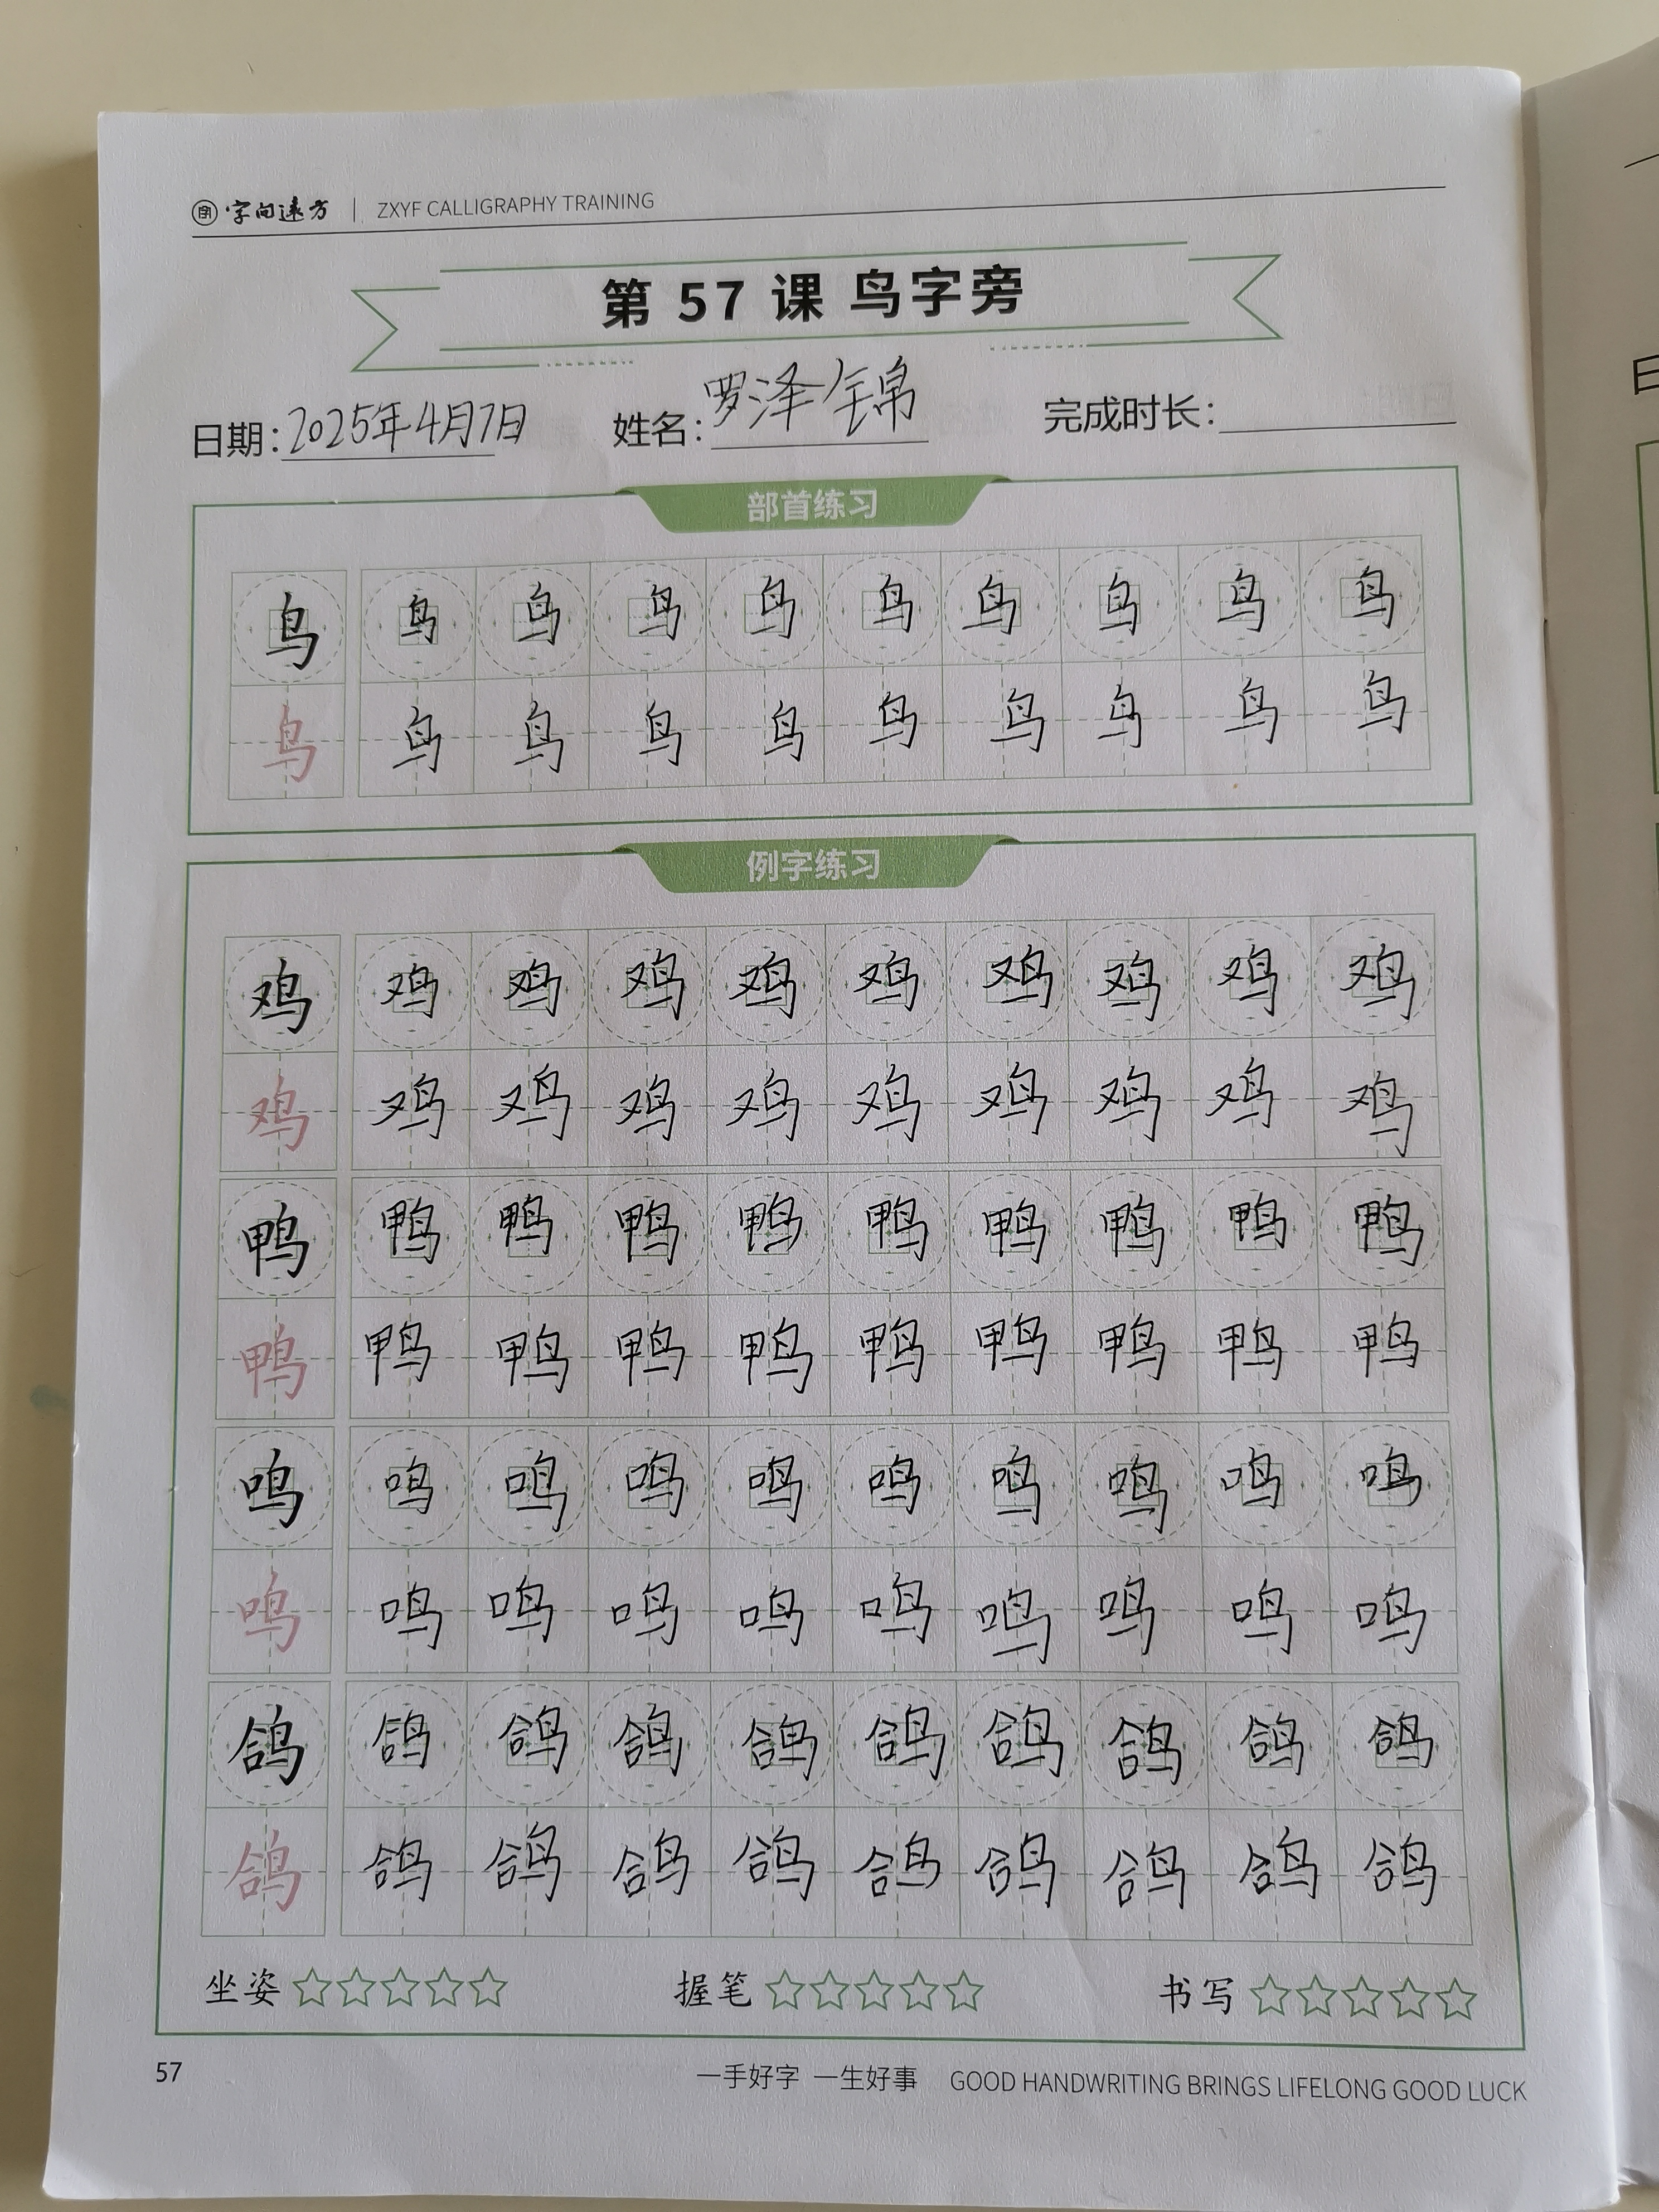 字 字向远方 | ZXYF CALLIGRAPHY TRAINING
第 57 课 鸟字旁
日期：2025年4月7日 姓名：罗泽锦 完成时长：
部首练习
鸟 鸟 鸟 鸟 鸟 鸟 鸟 鸟 鸟 鸟
鸟 鸟 鸟 鸟 鸟 鸟 鸟 鸟 鸟 鸟
例字练习
鸡 鸡 鸡 鸡 鸡 鸡 鸡 鸡 鸡 鸡
鸡 鸡 鸡 鸡 鸡 鸡 鸡 鸡 鸡 鸡
鸭 鸭 鸭 鸭 鸭 鸭 鸭 鸭 鸭 鸭
鸭 鸭 鸭 鸭 鸭 鸭 鸭 鸭 鸭 鸭
鸣 鸣 鸣 鸣 鸣 鸣 鸣 鸣 鸣 鸣
鸣 鸣 鸣 鸣 鸣 鸣 鸣 鸣 鸣 鸣
鸽 鸽 鸽 鸽 鸽 鸽 鸽 鸽 鸽 鸽
鸽 鸽 鸽 鸽 鸽 鸽 鸽 鸽 鸽 鸽
坐姿 ☆☆☆☆☆ 握笔 ☆☆☆☆☆ 书写 ☆☆☆☆☆
57 一手好字 一生好事 GOOD HANDWRITING BRINGS LIFELONG GOOD LUCK
日